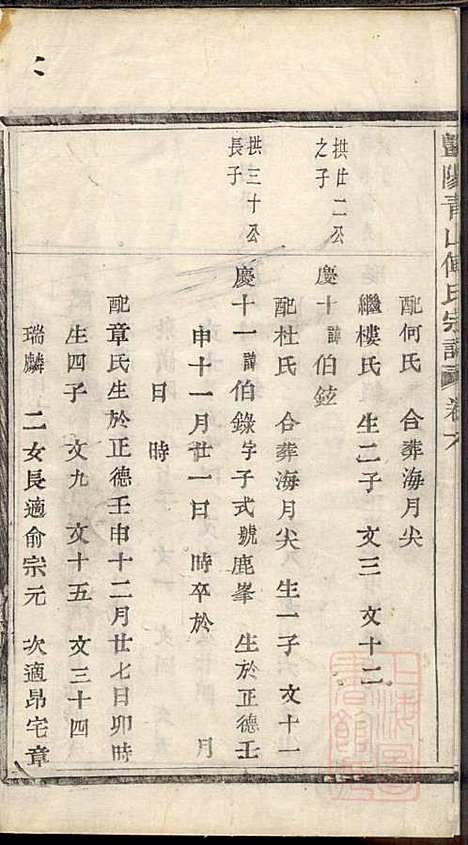 暨陽青山傅氏宗譜 卷六
配何氏 合葬海月尖
繼樓氏 生二子 文三 文十二
拱廿二公之子
慶十 諱伯鉉
配杜氏 合葬海月尖 生一子 文十一
拱三十公長子
慶十一 諱伯錄字子式號鹿峯 生於正德壬
申十一月廿一日 時卒於 月
日 時
配章氏生於正德壬申十二月廿七日卯時
生四子 文九 文十五 文三十四
瑞麟 二女長適俞宗元 次適昂宅章
上海圖書館藏